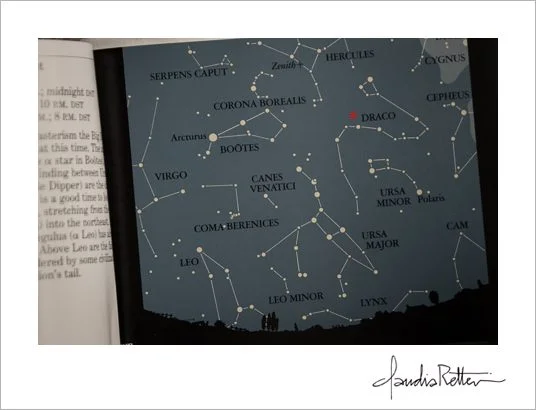 ; midnight DST
10 P.M. DST
M.; 8 P.M. DST
asterism the Big
at this time. The
α star in Boötes
nding between
e Dipper) are the
is a good time to
stretching from the
) into the northeast
gulus (α Leo) has
Above Leo are the
dered by some
ion's tail.
SERPENS CAPUT
Zenith +
HERCULES
CYGNUS
CORONA BOREALIS
CEPHEUS
DRACO
Arcturus
BOÖTES
VIRGO
CANES
VENATICI
URSA
MINOR
Polaris
COMA BERENICES
CAM
URSA
MAJOR
LEO
LEO MINOR
LYNX